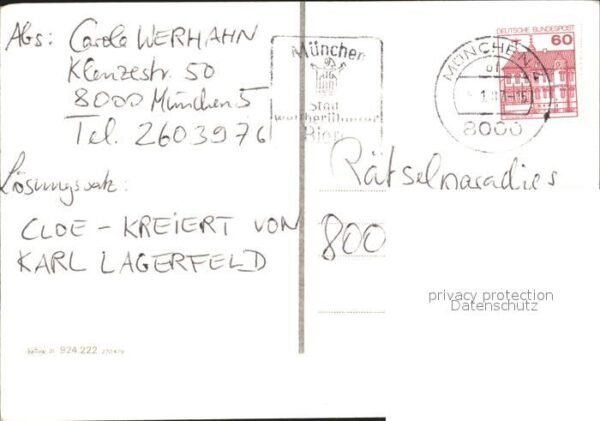 Abs: Carola WERHAHN
Klenzestr. 50
8000 München 5
Tel. 2603976
Lösungssatz:
CLOE - KREIERT VON
KARL LAGERFELD
München
Stadt
weltberühmter
Biere
DEUTSCHE BUNDESPOST
60
MÜNCHEN
8000
Rätselparadies
800
privacy protection
Datenschutz
924.222